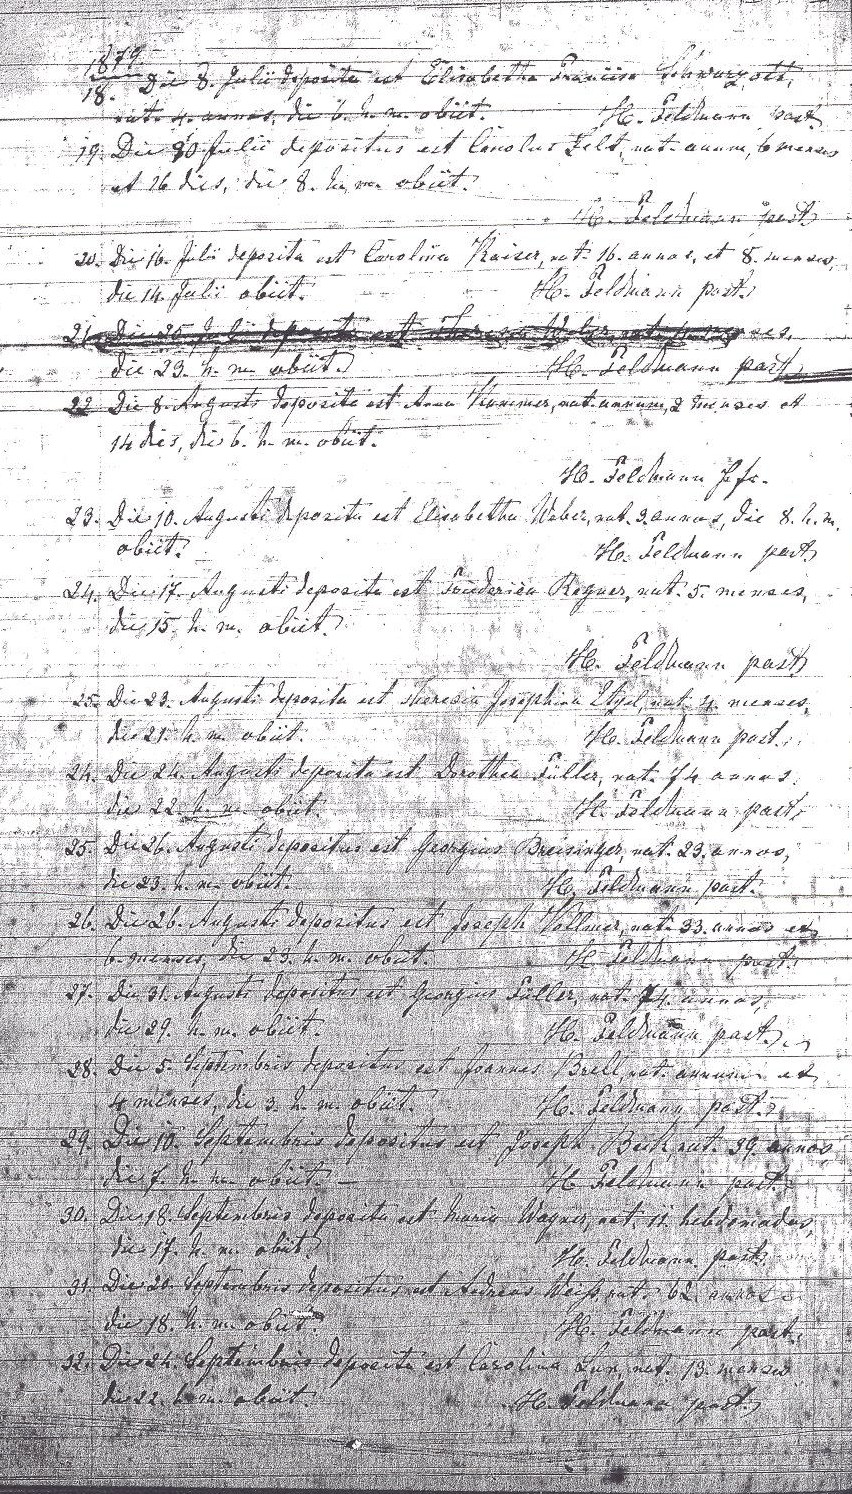 1879.
18. Die 8. Julii deposita est Elisabetha Francisca Schwarzott,
nat. 4. annos, die 6. h. m. obiit. H. Feldmann past.
19. Die 10 Julii depositus est Carolus Felt, nat. annum, 6 menses
et 16 dies, die 8. h. m. obiit.
H. Feldmann past.
20. Die 16. Julii deposita est Carolina Kaiser, nat. 16. annos, et 8. menses,
die 14. Julii obiit. H. Feldmann past.
21. Die 25. Julii deposita est Theresia Weber, nat. menses,
die 23. h. m. obiit. H. Feldmann past.
22. Die 8. Augusti deposita est Anna Kummer, nat. annum, 2 menses et
14 dies, die 6. h. m. obiit.
H. Feldmann
23. Die 10. Augusti deposita est Elisabetha Weber, nat. 3. annos, die 8. h. m.
obiit. H. Feldmann past.
24. Die 17. Augusti deposita est Friederica Regner, nat. 5. menses,
die 15. h. m. obiit.
H. Feldmann past.
25. Die 23. Augusti deposita est Theresia Josephina Etzel, nat. 4. menses,
die 21. h. m. obiit. H. Feldmann past.
24. Die 24. Augusti deposita est Dorothea Füller, nat. 74 annos.
die 22. h. m. obiit. H. Feldmann past.
25. Die 26. Augusti depositus est Georgius Breisinger, nat. 23. annos,
die 23. h. m. obiit. H. Feldmann past.
26. Die 26. Augusti depositus est Joseph Vollmer, nat. 33. annos et
6. menses, die 23. h. m. obiit. H. Feldmann past.
27. Die 31. Augusti depositus est Georgius Füller, nat. 74. annos,
die 29. h. m. obiit. H. Feldmann past.
28. Die 5. Septembris depositus est Joannes Brell, nat. annum et
4 menses, die 3. h. m. obiit. H. Feldmann past.
29. Die 10. Septembris depositus est Joseph Beck, nat. 39. annos
die 7. h. m. obiit. — H. Feldmann past.
30. Die 18. Septembris deposita est Maria Wagner, nat. 11. hebdomadas,
die 17. h. m. obiit. H. Feldmann past.
31. Die 20. Septembris depositus est Andreas Weiß, nat. 62. annos
die 18. h. m. obiit. H. Feldmann past.
32. Die 24. Septembris deposita est Carolina Lux, nat. 13. menses
die 22. h. m. obiit. H. Feldmann past.